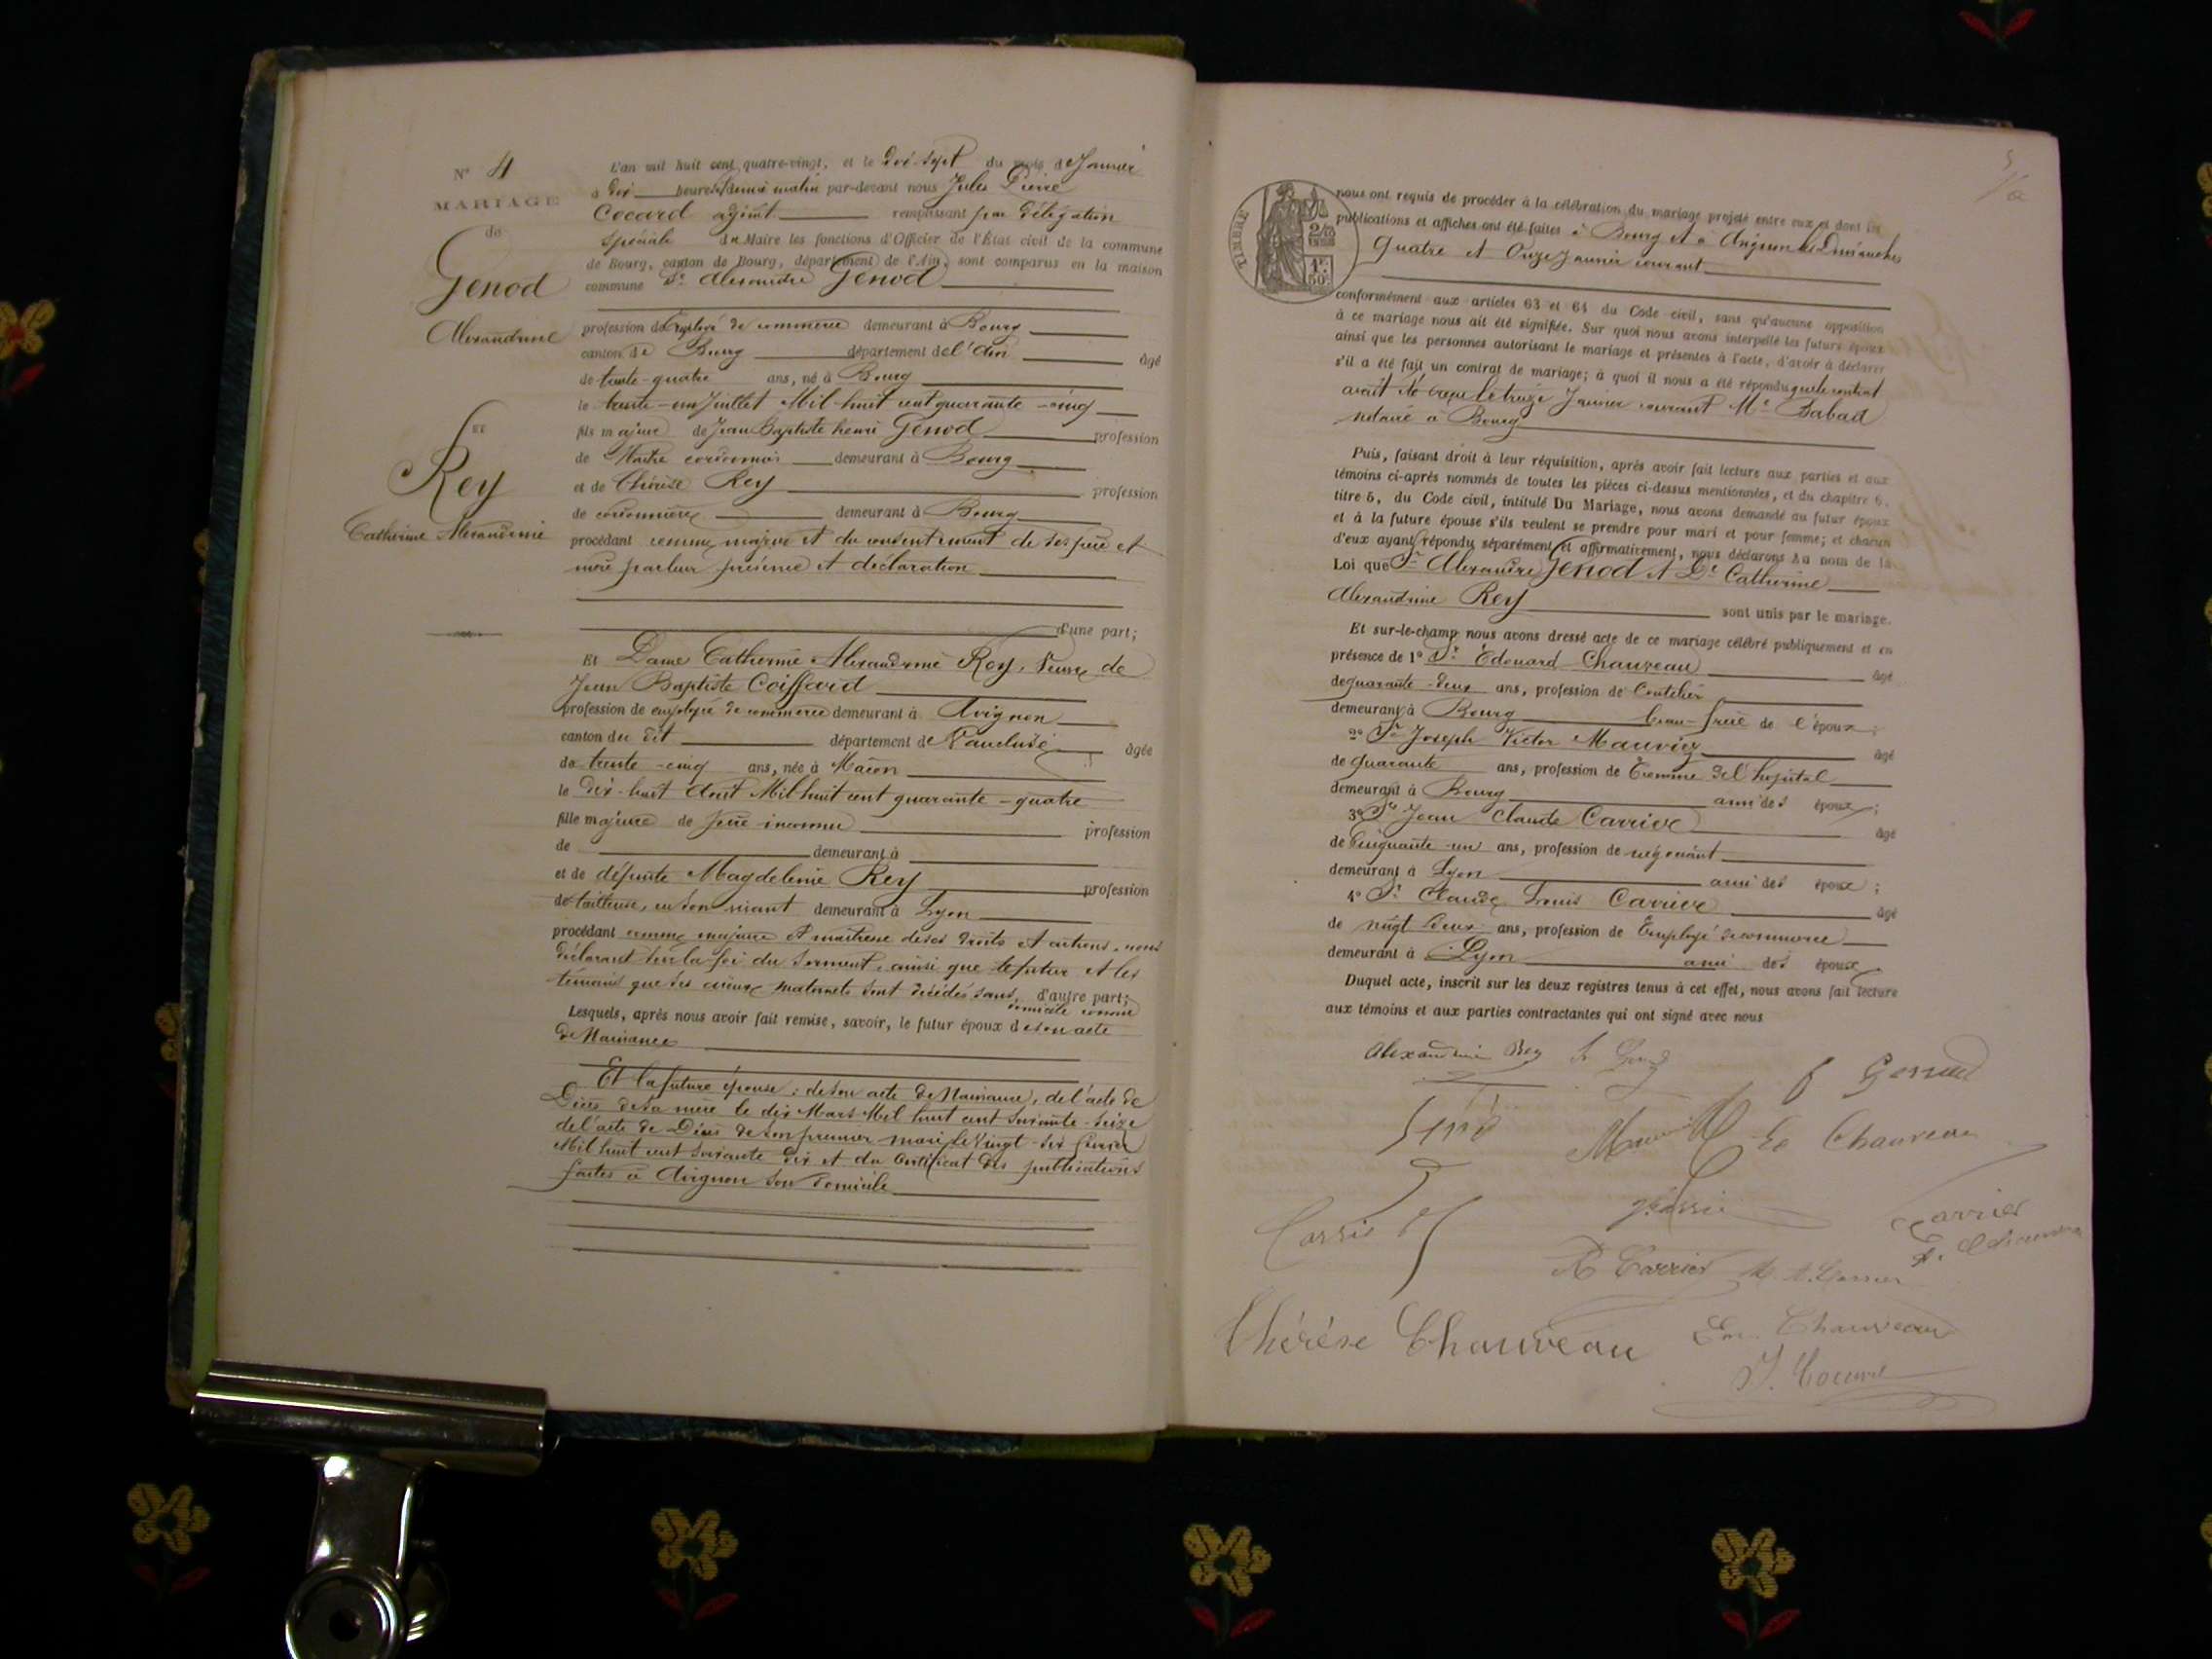 N° 4
MARIAGE
de
Genod
Alexandre
ET
Rey
Catherine Alexandrine
L'an mil huit cent quatre-vingt, et le dix-sept du mois de Janvier
à dix heures et demie matin par-devant nous Jules Pierre
Cocard adjoint remplissant par délégation
spéciale du Maire les fonctions d'Officier de l'État civil de la commune
de Bourg, canton de Bourg, département de l'Ain, sont comparus en la maison
commune Sr. Alexandre Genod
profession d'Employé de commerce demeurant à Bourg
canton de Bourg département de l'Ain âgé
de trente-quatre ans, né à Bourg
le trente-un Juillet Mil huit cent quarante-cinq
fils majeur de Jean Baptiste henri Genod profession
de Maître cordonnier demeurant à Bourg
et de Thérèse Rey profession
de cordonnière demeurant à Bourg
procédant comme majeur et du consentement de ses père et
mère par leur présence et déclaration
d'une part;
Et Dame Catherine Alexandrine Rey, Veuve de
Jean Baptiste Coiffard
profession de employée de commerce demeurant à Avignon
canton du dit département de Vaucluse âgée
de trente-cinq ans, née à Macon
le dix-huit Août Mil huit cent quarante-quatre
fille majeure de père inconnu profession
de demeurant à
et de défunte Magdeleine Rey profession
de tailleuse, en son vivant demeurant à Lyon
procédant comme majeure et maîtresse de ses droits et actions, nous
déclarant sur la foi du serment, ainsi que le futur et les
témoins que ses aïeux maternels sont décédés sans d'autre part;
domicile connu
Lesquels, après nous avoir fait remise, savoir, le futur époux de son acte
de Naissance
Et la future épouse: de son acte de Naissance, de l'acte de
Décès de sa mère le dix Mars Mil huit cent soixante-seize
de l'acte de Décès de son premier mari le Vingt-six février
Mil huit cent soixante dix et du Certificat des publications
faites à Avignon son domicile
5
TIMBRE
1F.
50c
nous ont requis de procéder à la célébration du mariage projeté entre eux et dont les
publications et affiches ont été faites à Bourg et à Avignon les Dimanches
Quatre et Onze Janvier courant
conformément aux articles 63 et 64 du Code civil, sans qu'aucune opposition
à ce mariage nous ait été signifiée. Sur quoi nous avons interpellé les futurs époux
ainsi que les personnes autorisant le mariage et présentes à l'acte, d'avoir à déclarer
s'il a été fait un contrat de mariage; à quoi il nous a été répondu que le contrat
avait été reçu le treize Janvier courant Me Dabad
notaire à Bourg
Puis, faisant droit à leur réquisition, après avoir fait lecture aux parties et aux
témoins ci-après nommés de toutes les pièces ci-dessus mentionnées, et du chapitre 6,
titre 5, du Code civil, intitulé Du Mariage, nous avons demandé au futur époux
et à la future épouse s'ils veulent se prendre pour mari et pour femme; et chacun
d'eux ayant répondu séparément et affirmativement, nous déclarons au nom de la
Loi que Sr Alexandre Genod et De Catherine
Alexandrine Rey sont unis par le mariage.
Et sur-le-champ nous avons dressé acte de ce mariage célébré publiquement et en
présence de 1° Sr Edouard Chauveau âgé
de quarante-deux ans, profession de Coutelier
demeurant à Bourg beau-frère de l'époux;
2° Sr Joseph Victor Mauviez âgé
de quarante ans, profession de Econome de l'hopital
demeurant à Bourg ami des époux;
3° Sr Jean Claude Carrive âgé
de Cinquante-un ans, profession de négociant
demeurant à Lyon ami des époux;
4° Sr Claude Louis Carrive âgé
de vingt deux ans, profession de Employé de commerce
demeurant à Lyon ami des époux
Duquel acte, inscrit sur les deux registres tenus à cet effet, nous avons fait lecture
aux témoins et aux parties contractantes qui ont signé avec nous
Alexandrine Rey
Genod
Chauveau
Carrier
Thérèse Chauveau
Em. Chauveau
J. Cocard